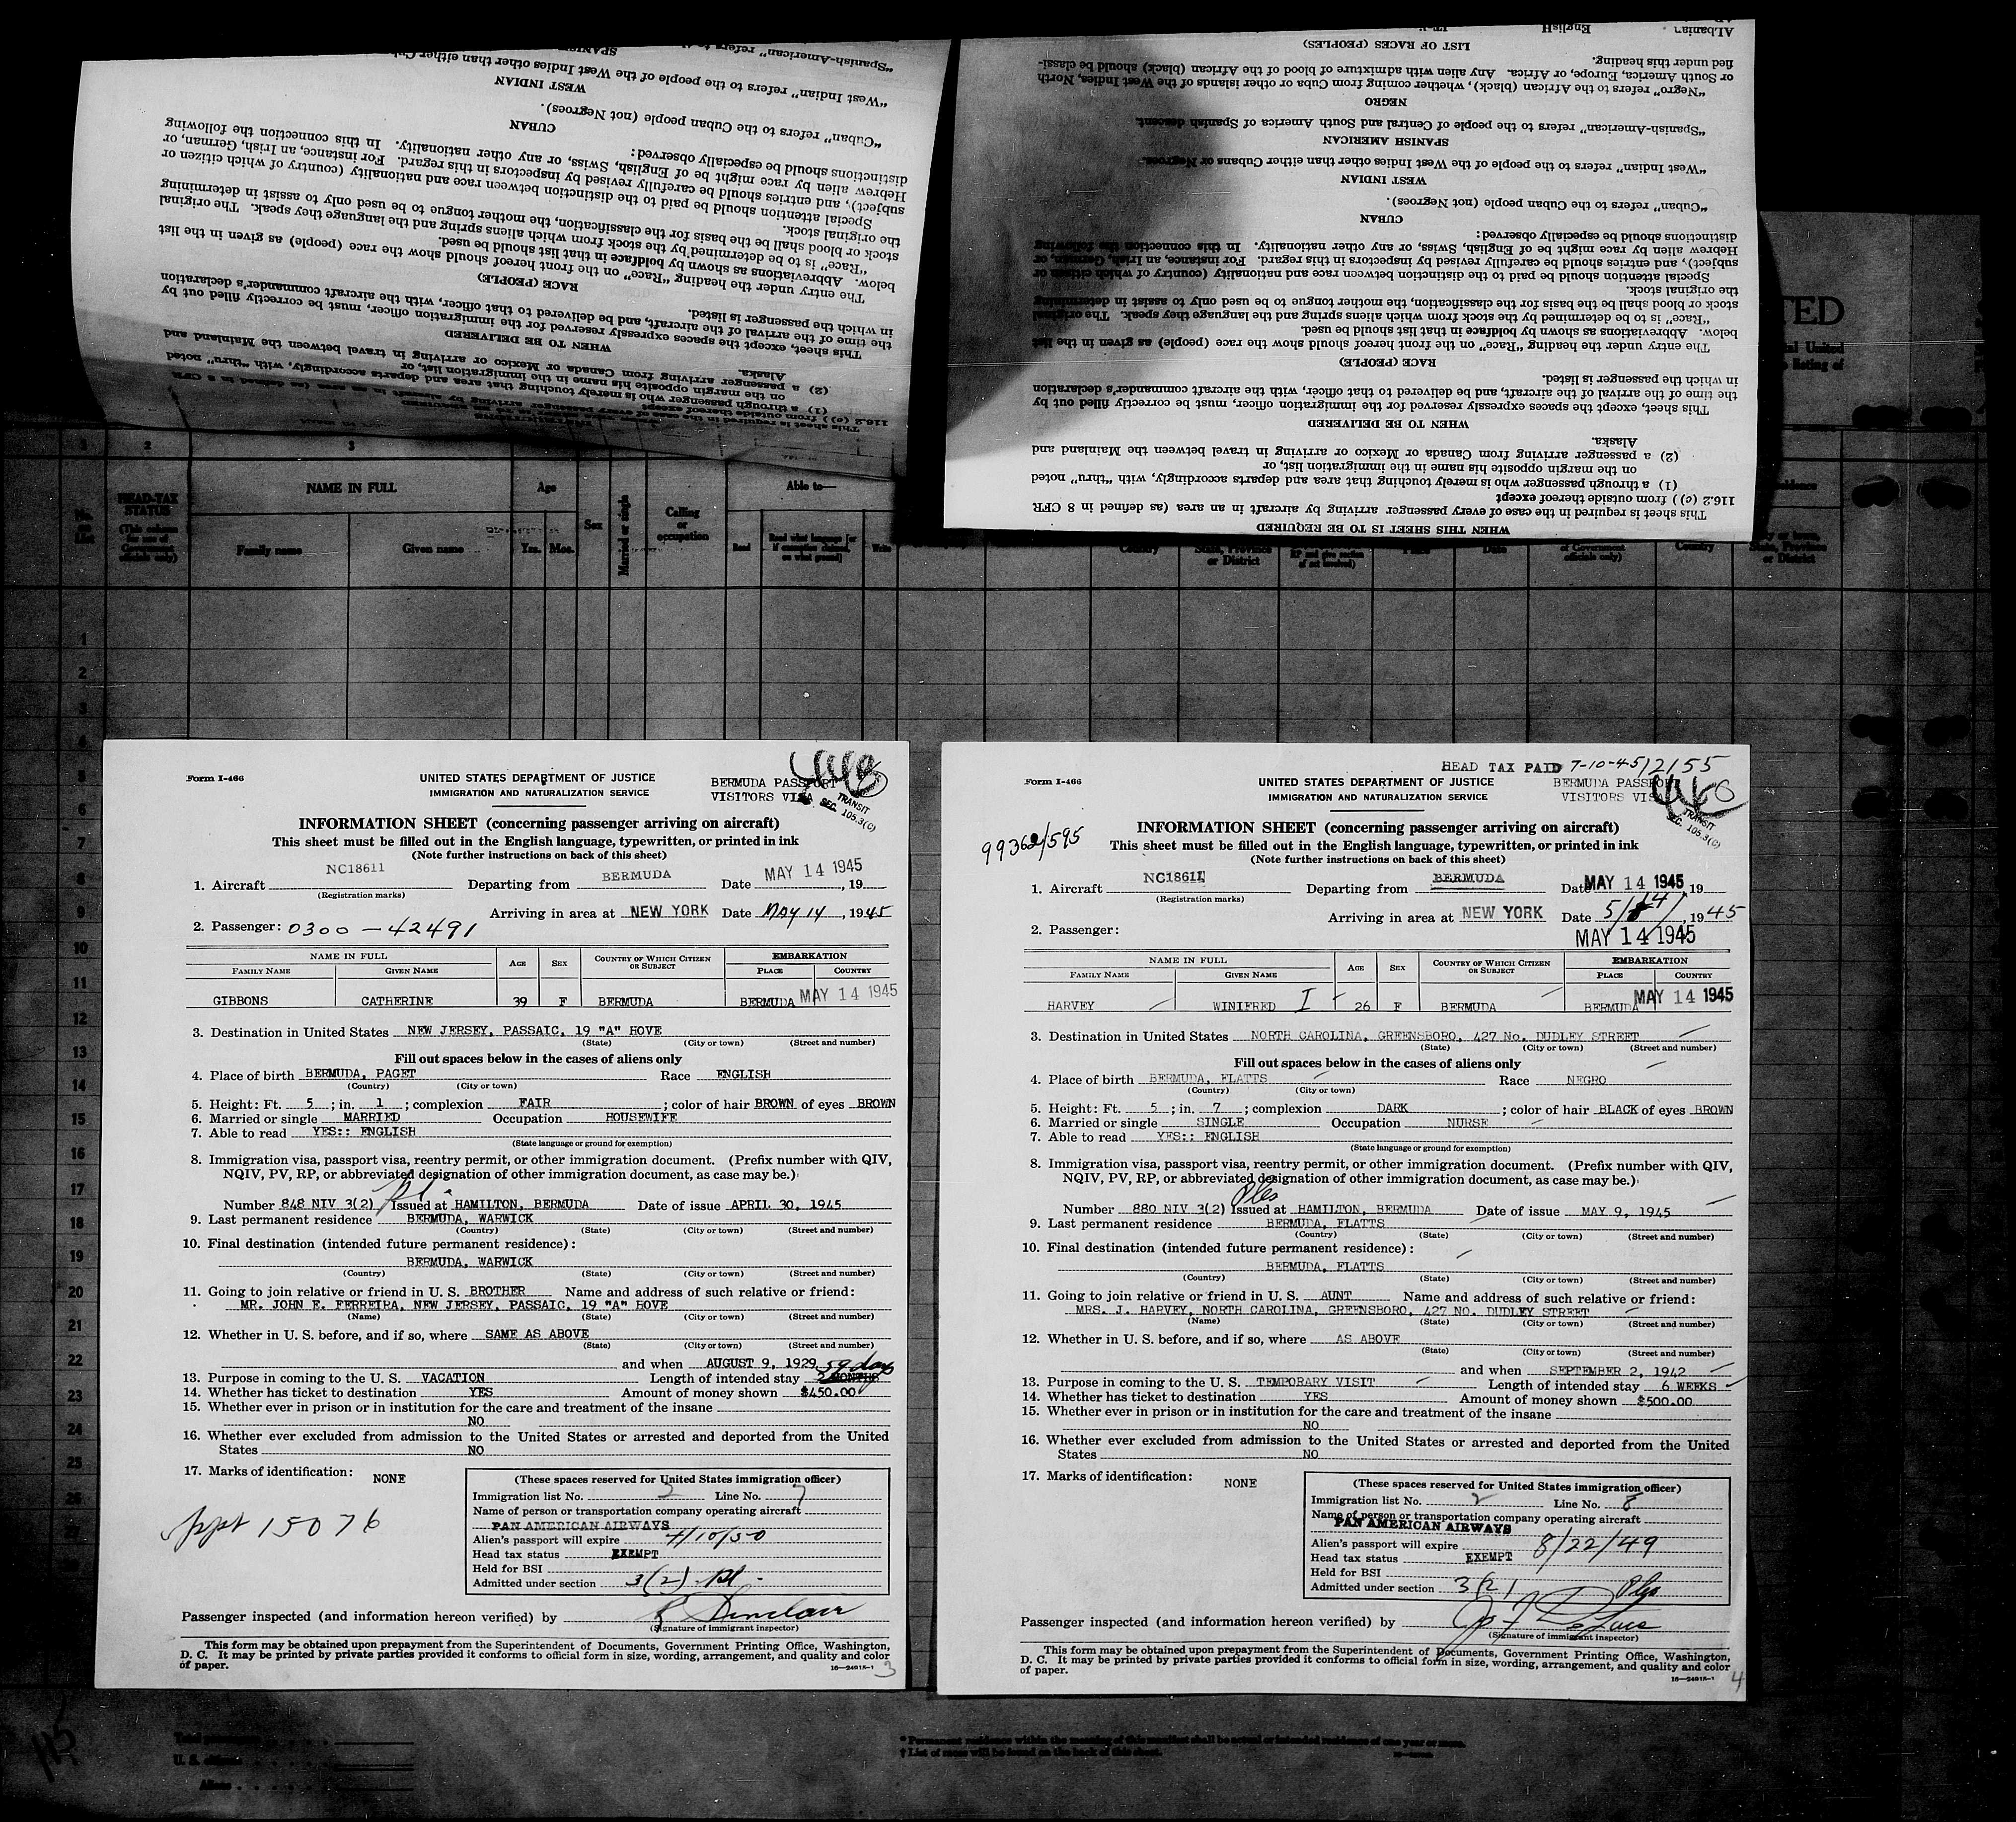 "Spanish-American" refers to
SPANISH
"West Indian" refers to the people of the West Indies other than either
WEST INDIAN
"Cuban" refers to the Cuban people (not Negroes).
CUBAN
distinctions should be especially observed:
Hebrew alien by race might be of English, Swiss, or any other nationality. In this connection the following
subject), and entries should be carefully revised by inspectors in this regard. For instance, an Irish, German, or
Special attention should be paid to the distinction between race and nationality (country of which citizen or
the original stock.
stock or blood shall be the basis for the classification, the mother tongue to be used only to assist in determining
"Race" is to be determined by the stock from which aliens spring and the language they speak. The original
below. Abbreviations as shown by boldface in that list should be used.
The entry under the heading "Race" on the front hereof should show the race (people) as given in the list
RACE (PEOPLE)
in which the passenger is listed.
the time of the arrival of the aircraft, and be delivered to that officer, with the aircraft commander's declaration
This sheet, except the spaces expressly reserved for the immigration officer, must be correctly filled out by
WHEN TO BE DELIVERED
Alaska.
(2) a passenger arriving from Canada or Mexico or arriving in travel between the Mainland and
on the margin opposite his name in the immigration list, or
(1) a through passenger who is merely touching that area and departs accordingly, with "thru" noted
116.2 (c) ) from outside thereof except
This sheet is required in the case of every passenger arriving by aircraft in an area (as defined in 8 CFR
Albanian English
LIST OF RACES (PEOPLES)
fied under this heading.
or South America, Europe, or Africa. Any alien with admixture of blood of the African (black) should be classi-
"Negro" refers to the African (black), whether coming from Cuba or other islands of the West Indies, North
NEGRO
"Spanish-American" refers to the people of Central and South America of Spanish descent.
SPANISH AMERICAN
"West Indian" refers to the people of the West Indies other than either Cubans or Negroes.
WEST INDIAN
"Cuban" refers to the Cuban people (not Negroes).
CUBAN
distinctions should be especially observed:
Hebrew alien by race might be of English, Swiss, or any other nationality. In this connection the following
subject), and entries should be carefully revised by inspectors in this regard. For instance, an Irish, German, or
Special attention should be paid to the distinction between race and nationality (country of which citizen or
the original stock.
stock or blood shall be the basis for the classification, the mother tongue to be used only to assist in determining
"Race" is to be determined by the stock from which aliens spring and the language they speak. The original
below. Abbreviations as shown by boldface in that list should be used.
The entry under the heading "Race" on the front hereof should show the race (people) as given in the list
RACE (PEOPLE)
in which the passenger is listed.
the time of the arrival of the aircraft, and be delivered to that officer, with the aircraft commander's declaration
This sheet, except the spaces expressly reserved for the immigration officer, must be correctly filled out by
WHEN TO BE DELIVERED
Alaska.
(2) a passenger arriving from Canada or Mexico or arriving in travel between the Mainland and
on the margin opposite his name in the immigration list, or
(1) a through passenger who is merely touching that area and departs accordingly, with "thru" noted
116.2 (c) ) from outside thereof except
This sheet is required in the case of every passenger arriving by aircraft in an area (as defined in 8 CFR
WHEN THIS SHEET IS TO BE REQUIRED
TED
United
listing of
1 2 3
HEAD-TAX STATUS
(This column for use of Government officials only)
NAME IN FULL
Family name Given name
Age
Yrs. Mos.
Sex
Married or single
Calling or occupation
Able to—
Read
Read what language [or if exemption claimed, on what ground]
Write
Country
State, Province or District
Place
Date
of Government officials only)
Country
City or town, State, Province or District
1
2
3
4
5
6
7
8
9
10
11
12
13
14
15
16
17
18
19
20
21
22
23
24
25
26
27
Form I-466
UNITED STATES DEPARTMENT OF JUSTICE
IMMIGRATION AND NATURALIZATION SERVICE
BERMUDA PASSPORT
VISITORS VISA
TRANSIT
SEC. 105.3(c)
INFORMATION SHEET (concerning passenger arriving on aircraft)
This sheet must be filled out in the English language, typewritten, or printed in ink
(Note further instructions on back of this sheet)
1. Aircraft NC18611 Departing from BERMUDA Date MAY 14 1945, 19
(Registration marks)
Arriving in area at NEW YORK Date May 14, 1945
2. Passenger: 0300 - 42491
NAME IN FULL AGE SEX COUNTRY OF WHICH CITIZEN OR SUBJECT EMBARKATION
FAMILY NAME GIVEN NAME PLACE COUNTRY
GIBBONS CATHERINE 39 F BERMUDA BERMUDA MAY 14 1945
3. Destination in United States NEW JERSEY, PASSAIC, 19 "A" HOVE
(State) (City or town) (Street and number)
Fill out spaces below in the cases of aliens only
4. Place of birth BERMUDA, PAGET Race ENGLISH
(Country) (City or town)
5. Height: Ft. 5; in. 1; complexion FAIR; color of hair BROWN of eyes BROWN
6. Married or single MARRIED Occupation HOUSEWIFE
7. Able to read YES:: ENGLISH
(State language or ground for exemption)
8. Immigration visa, passport visa, reentry permit, or other immigration document. (Prefix number with QIV,
NQIV, PV, RP, or abbreviated designation of other immigration document, as case may be.)
Number 848 NIV 3(2) Issued at HAMILTON, BERMUDA Date of issue APRIL 30, 1945
9. Last permanent residence BERMUDA, WARWICK
(Country) (State) (City or town) (Street and number)
10. Final destination (intended future permanent residence):
BERMUDA, WARWICK
(Country) (State) (City or town) (Street and number)
11. Going to join relative or friend in U. S. BROTHER Name and address of such relative or friend:
MR. JOHN E. FERREIRA, NEW JERSEY, PASSAIC, 19 "A" HOVE
(Name) (State) (City or town) (Street and number)
12. Whether in U. S. before, and if so, where SAME AS ABOVE
(State) (City or town) (Street and number)
and when AUGUST 9, 1929 59 days
13. Purpose in coming to the U. S. VACATION Length of intended stay 2 MONTHS
14. Whether has ticket to destination YES Amount of money shown $450.00
15. Whether ever in prison or in institution for the care and treatment of the insane
NO
16. Whether ever excluded from admission to the United States or arrested and deported from the United
States NO
17. Marks of identification: NONE
ppt 15076
(These spaces reserved for United States immigration officer)
Immigration list No. 2 Line No. 7
Name of person or transportation company operating aircraft
PAN AMERICAN AIRWAYS
Alien's passport will expire 4/10/50
Head tax status EXEMPT
Held for BSI
Admitted under section 3(2) Pl.
Passenger inspected (and information hereon verified) by Sinclair
(Signature of immigrant inspector)
This form may be obtained upon prepayment from the Superintendent of Documents, Government Printing Office, Washington,
D. C. It may be printed by private parties provided it conforms to official form in size, wording, arrangement, and quality and color
of paper.
16—24015-1 3
HEAD TAX PAID 7-10-45 12155
Form I-466
UNITED STATES DEPARTMENT OF JUSTICE
IMMIGRATION AND NATURALIZATION SERVICE
BERMUDA PASSPORT
VISITORS VISA
TRANSIT
SEC. 105.3(c)
INFORMATION SHEET (concerning passenger arriving on aircraft)
This sheet must be filled out in the English language, typewritten, or printed in ink
(Note further instructions on back of this sheet)
1. Aircraft NC18611 Departing from BERMUDA Date MAY 14 1945, 19
(Registration marks)
Arriving in area at NEW YORK Date 5/14/, 1945
2. Passenger: MAY 14 1945
NAME IN FULL AGE SEX COUNTRY OF WHICH CITIZEN OR SUBJECT EMBARKATION
FAMILY NAME GIVEN NAME PLACE COUNTRY
HARVEY WINIFRED I 26 F BERMUDA BERMUDA MAY 14 1945
3. Destination in United States NORTH CAROLINA, GREENSBORO, 427 No. DUDLEY STREET
(State) (City or town) (Street and number)
Fill out spaces below in the cases of aliens only
4. Place of birth BERMUDA, FLATTS Race NEGRO
(Country) (City or town)
5. Height: Ft. 5; in. 7; complexion DARK; color of hair BLACK of eyes BROWN
6. Married or single SINGLE Occupation NURSE
7. Able to read YES:: ENGLISH
(State language or ground for exemption)
8. Immigration visa, passport visa, reentry permit, or other immigration document. (Prefix number with QIV,
NQIV, PV, RP, or abbreviated designation of other immigration document, as case may be.)
Number 880 NIV 3(2) Issued at HAMILTON, BERMUDA Date of issue MAY 9, 1945
9. Last permanent residence BERMUDA, FLATTS
(Country) (State) (City or town) (Street and number)
10. Final destination (intended future permanent residence):
BERMUDA, FLATTS
(Country) (State) (City or town) (Street and number)
11. Going to join relative or friend in U. S. AUNT Name and address of such relative or friend:
MRS. J. HARVEY, NORTH CAROLINA, GREENSBORO, 427 NO. DUDLEY STREET
(Name) (State) (City or town) (Street and number)
12. Whether in U. S. before, and if so, where AS ABOVE
(State) (City or town) (Street and number)
and when SEPTEMBER 2, 1942
13. Purpose in coming to the U. S. TEMPORARY VISIT Length of intended stay 6 WEEKS
14. Whether has ticket to destination YES Amount of money shown $500.00
15. Whether ever in prison or in institution for the care and treatment of the insane
NO
16. Whether ever excluded from admission to the United States or arrested and deported from the United
States NO
17. Marks of identification: NONE
(These spaces reserved for United States immigration officer)
Immigration list No. 2 Line No. 8
Name of person or transportation company operating aircraft
PAN AMERICAN AIRWAYS
Alien's passport will expire 8/22/49
Head tax status EXEMPT
Held for BSI
Admitted under section 3(2) Ples
Passenger inspected (and information hereon verified) by
(Signature of immigrant inspector)
This form may be obtained upon prepayment from the Superintendent of Documents, Government Printing Office, Washington,
D. C. It may be printed by private parties provided it conforms to official form in size, wording, arrangement, and quality and color
of paper.
16—24015-1 4
Total
U. S. citizens
Aliens
* Permanent residence within the meaning of this manifest shall be actual or intended residence of one year or more.
† List of races will be found on the back of this sheet.